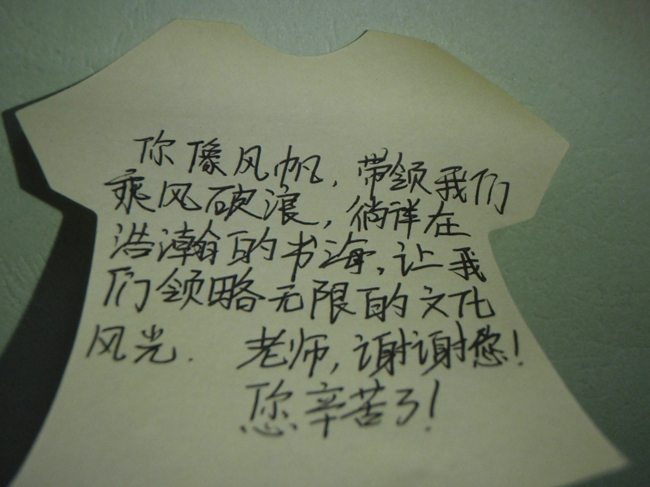 你像风帆，带领我们
乘风破浪，徜徉在
浩瀚的书海，让我
们领略无限的文化
风光．老师，谢谢您！
您辛苦了！